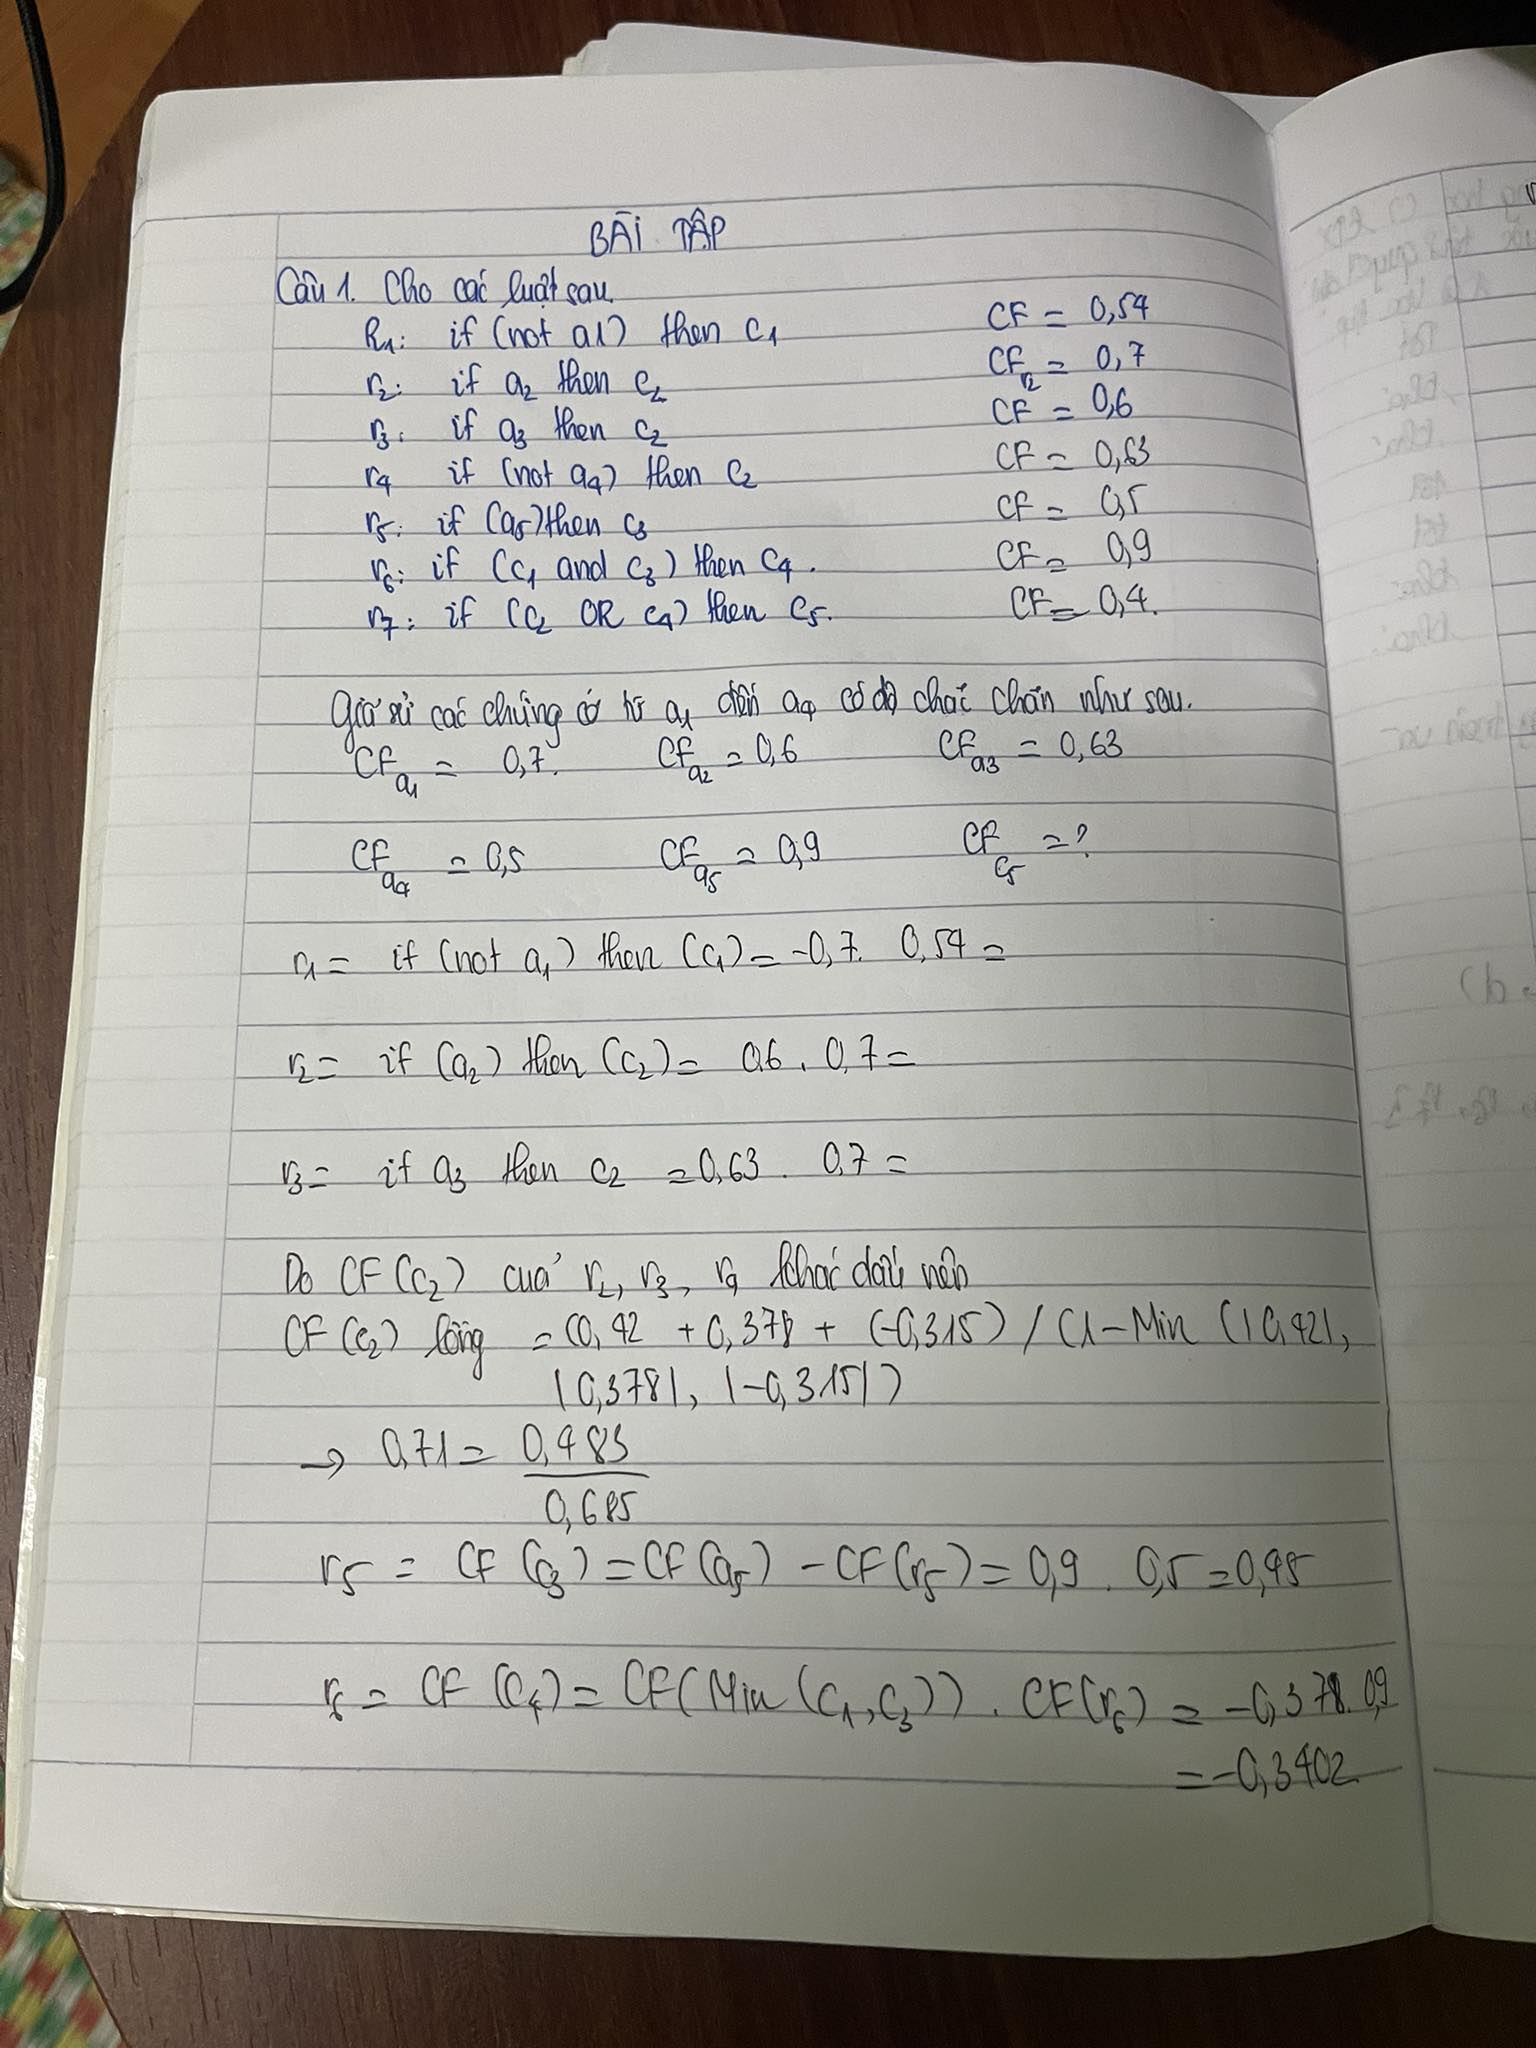 BÀI TẬP
Câu 1. Cho các luật sau
R1: if (not a1) then c1 CF = 0,54
r2: if a2 then c2 CF r2 = 0,7
r3: if a3 then c2 CF = 0,6
r4 if (not a4) then c2 CF = 0,63
r5: if (a5) then c3 CF = 0,5
r6: if (c1 and c3) then c4. CF = 0,9
r7: if (c2 OR c4) then c5. CF = 0,4.
Giả sử các chứng cớ từ a1 đến a4 có độ chắc chắn như sau.
CFa1 = 0,7. CFa2 = 0,6 CFa3 = 0,63
CFa4 = 0,5 CFa5 = 0,9 CFc5 = ?
r1 = if (not a1) then (c1) = -0,7. 0,54 =
r2 = if (a2) then (c2) = 0,6 . 0,7 =
r3 = if a3 then c2 = 0,63 . 0,7 =
Do CF (c2) của r2, r3, r4 khác dấu nên
CF (c2) tổng = (0,42 + 0,378 + (-0,315) / (1 - Min (|0,42|,
|0,378|, |-0,315|)
→ 0,71 = 0,483
0,685
r5 = CF (c3) = CF (a5) - CF (r5) = 0,9 . 0,5 = 0,45
r6 = CF (c4) = CF (Min (c1, c3)) . CF (r6) = -0,378. 0,9
= -0,3402.